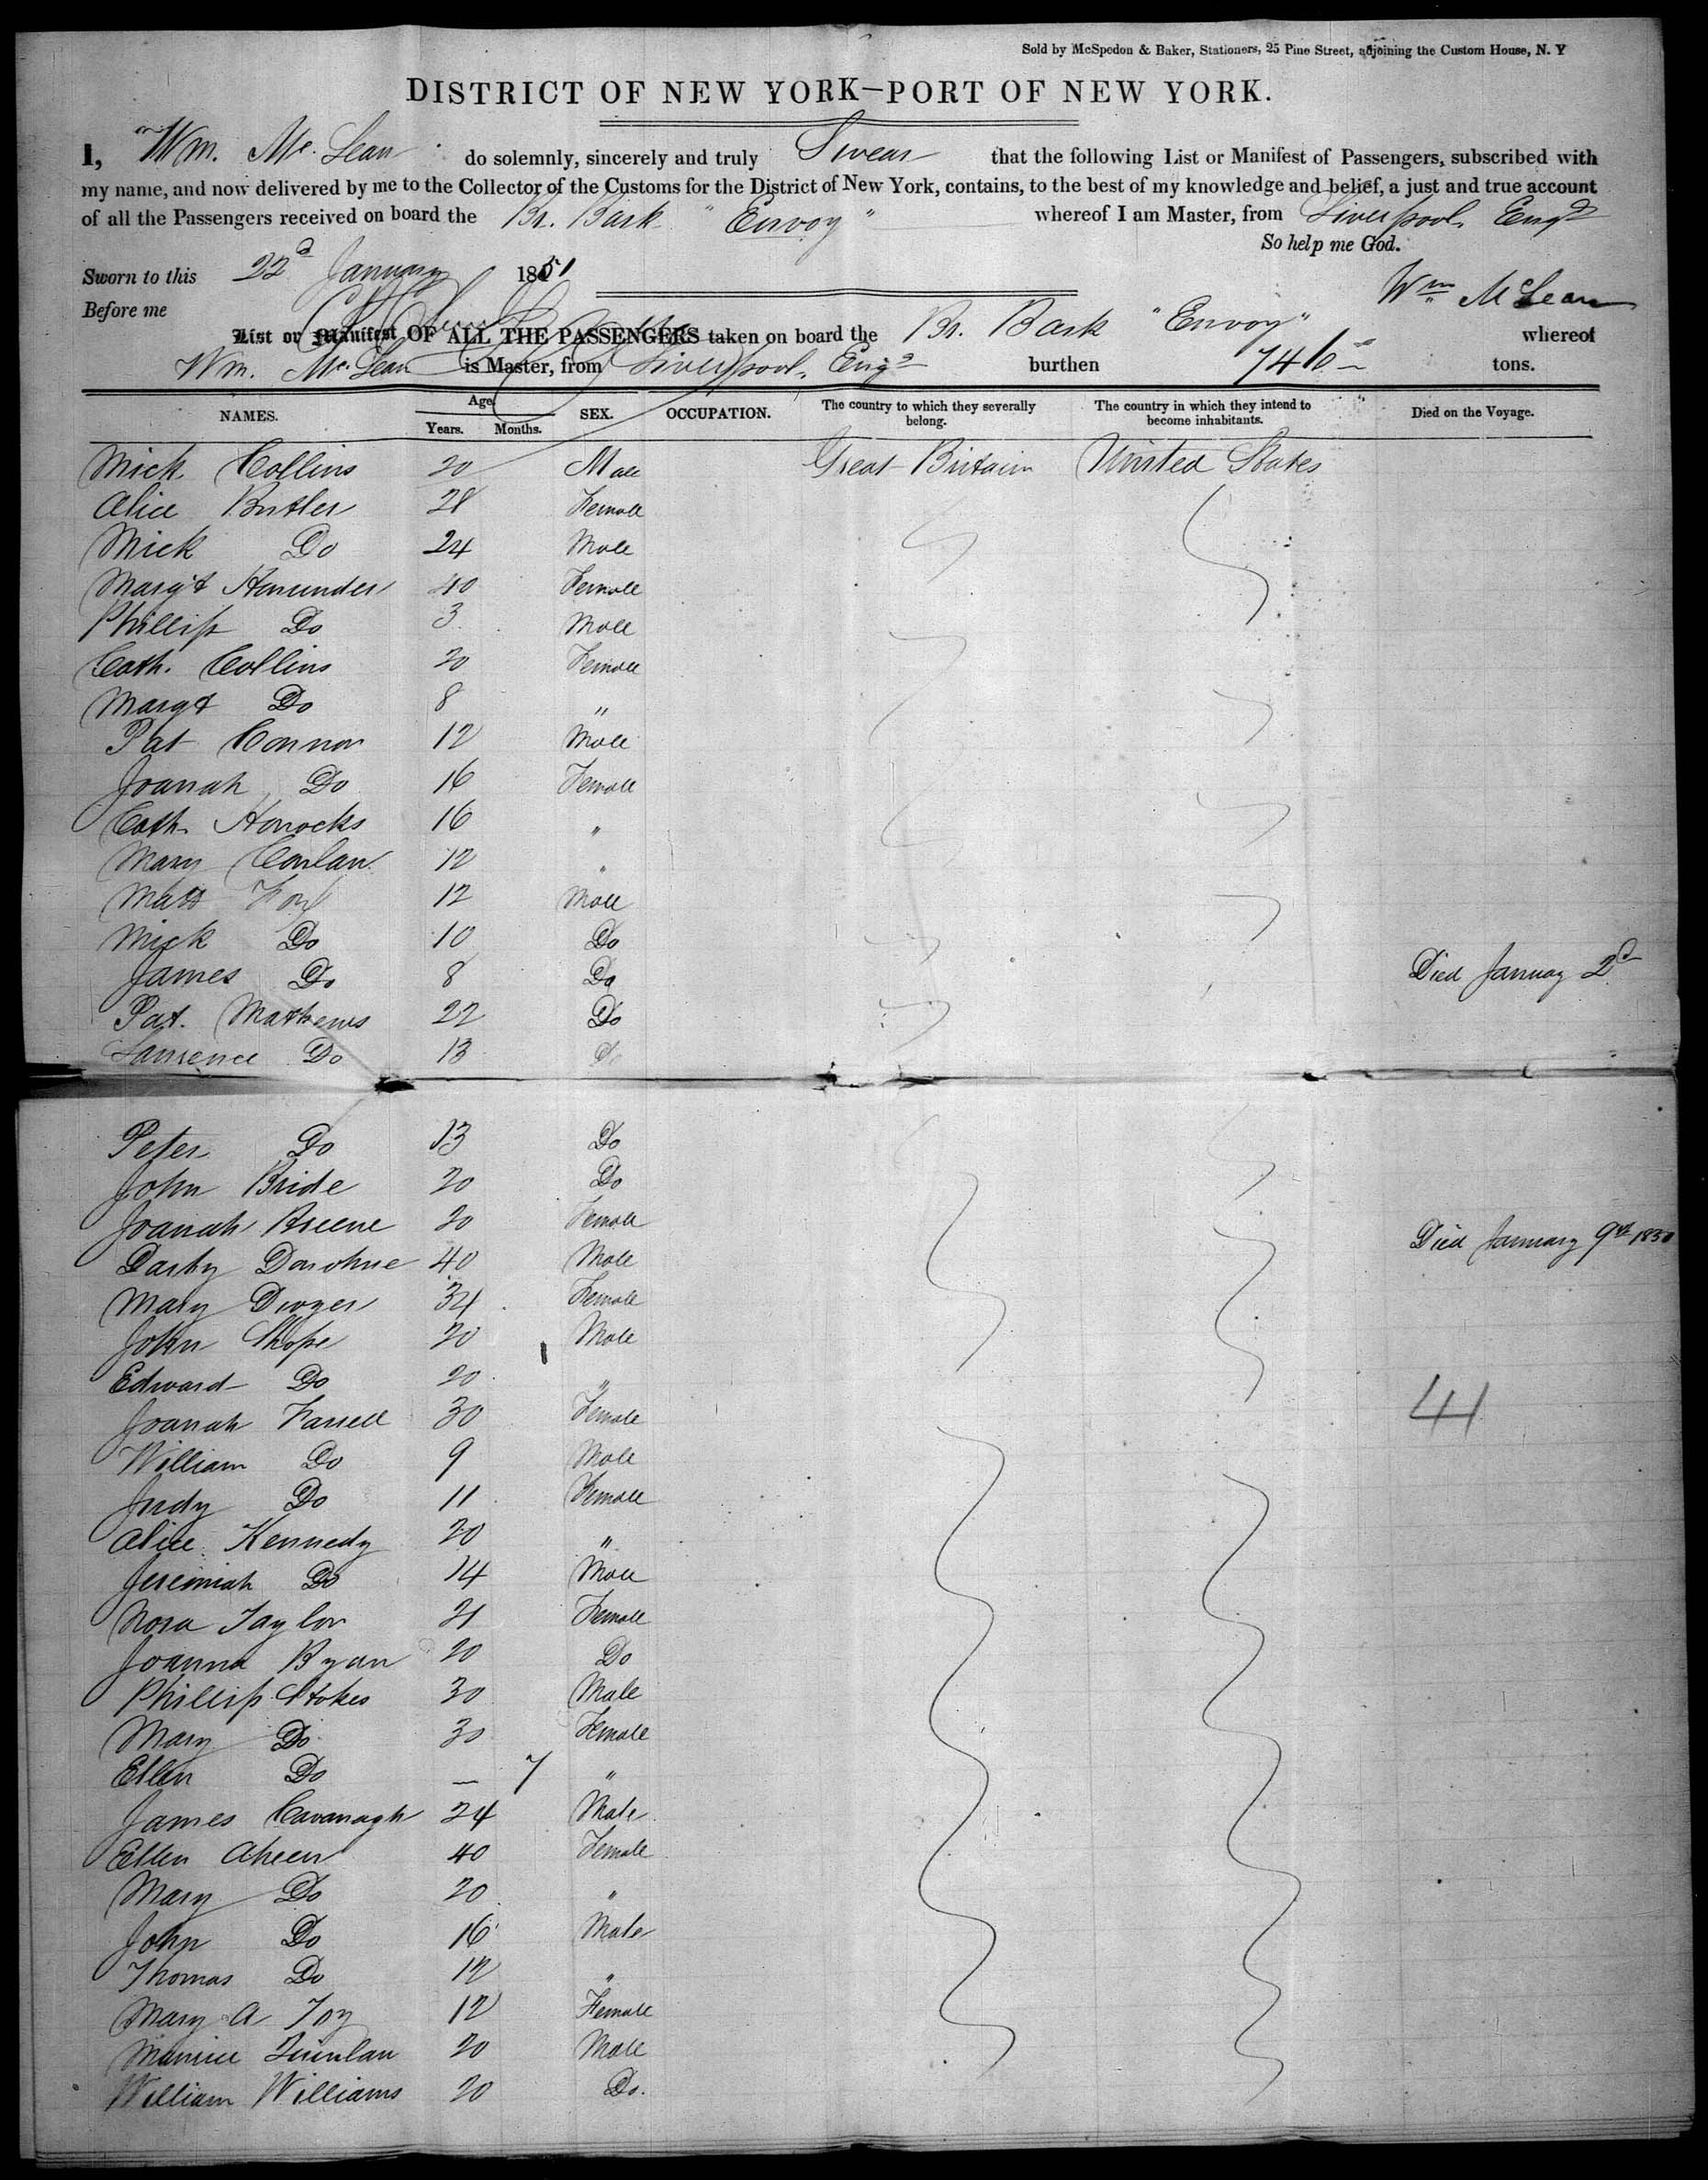 Sold by McSpedon & Baker, Stationers, 25 Pine Street, adjoining the Custom House, N. Y
DISTRICT OF NEW YORK—PORT OF NEW YORK.
I, Wm. Mc. Lean do solemnly, sincerely and truly Swear that the following List or Manifest of Passengers, subscribed with
my name, and now delivered by me to the Collector of the Customs for the District of New York, contains, to the best of my knowledge and belief, a just and true account
of all the Passengers received on board the Br. Bark "Envoy" whereof I am Master, from Liverpool, Engd
So help me God.
Sworn to this 22d January 1851
Wm McLean
Before me
List or Manifest OF ALL THE PASSENGERS taken on board the Br. Bark "Envoy" whereof
Wm. Mc. Lean is Master, from Liverpool, Engd burthen tons.
NAMES. Age. Years. Months. SEX. OCCUPATION. The country to which they severally belong. The country in which they intend to become inhabitants. Died on the Voyage.
Mick Collins 20 Male Great Britain United States
Alice Butler 28 Female
Mick Do 24 Male
Margt 40 Female
Phillip Do 3 Male
Cath. Collins 20 Female
Margt Do 8 "
Pat Connor 12 Male
Joanah Do 16 Female
Cath. Horrocks 16 "
Mary Conlan 12 "
Matt 12 Male
Mick Do 10 Do
James Do 8 Do Died January 2d
Pat. Mathews 22 Do
Laurence Do 13 Do
Peter Do 13 Do
John Bride 20 Do
Joanah Breene 20 Female Died January 9th 1851
Darby Donohue 40 Male
Mary Dwyer 34 Female
John Shope 20 Male
Edward Do 20 "
44
Joanah Farrell 30 Female
William Do 9 Male
Judy Do 11 Female
Alice Kennedy 20 "
Jeremiah Do 14 Male
Nora Taylor 21 Female
Joanna Ryan 20 Do
Phillip Stokes 30 Male
Mary Do 30 Female
Ellen Do — 7 "
James Cavanagh 24 Male
Ellen Aheen 40 Female
Mary Do 20 "
John Do 16 Male
Thomas Do 12 "
Mary A 12 Female
Maurice Quinlan 20 Male
William Williams 20 Do.